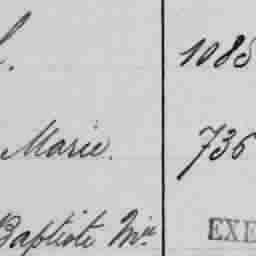 1085
Marie. 736
Baptiste EXE